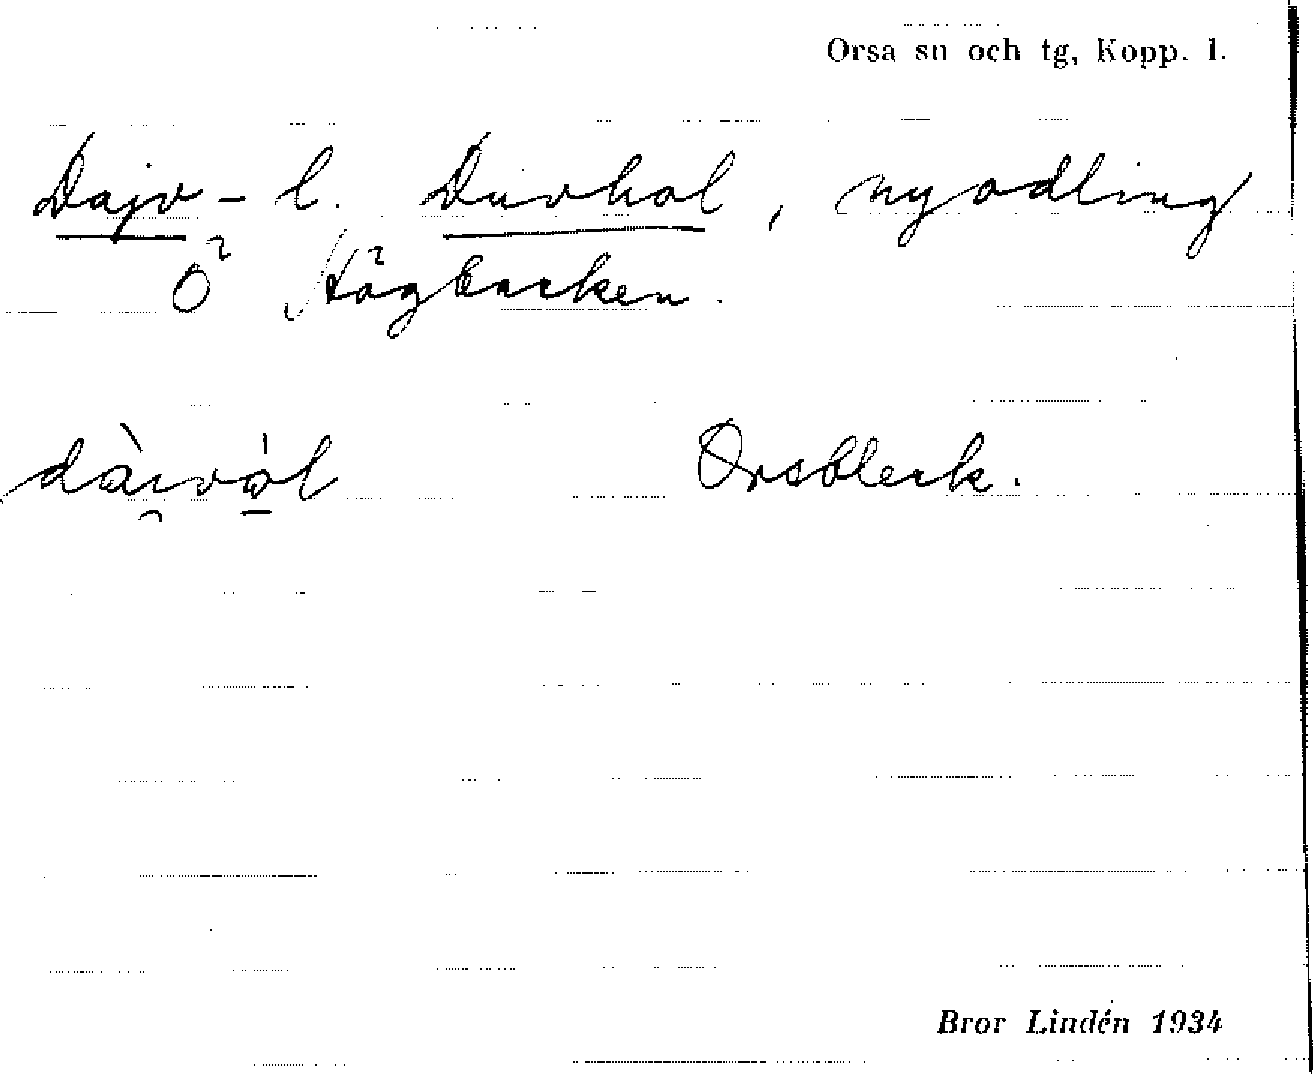 Orsa sn och tg, Kopp. l.
Dajv- l. Duvhol, nyodling
Ö Högbacken.
Orsbleck.
Bror Lindén 1934